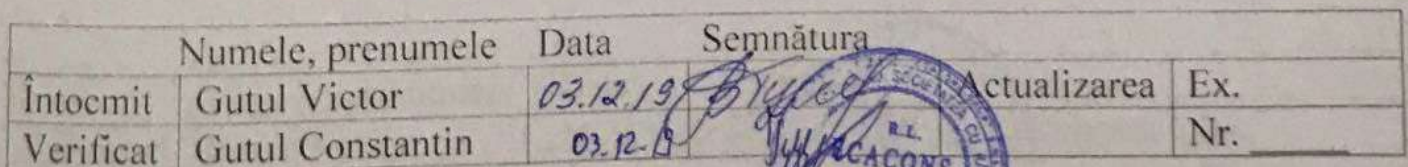 Numele, prenumele Data Semnătura
Întocmit Gutul Victor 03.12.19 Actualizarea Ex.
Verificat Gutul Constantin 03.12.19 Nr.
SOCIETATEA CU
R.L.